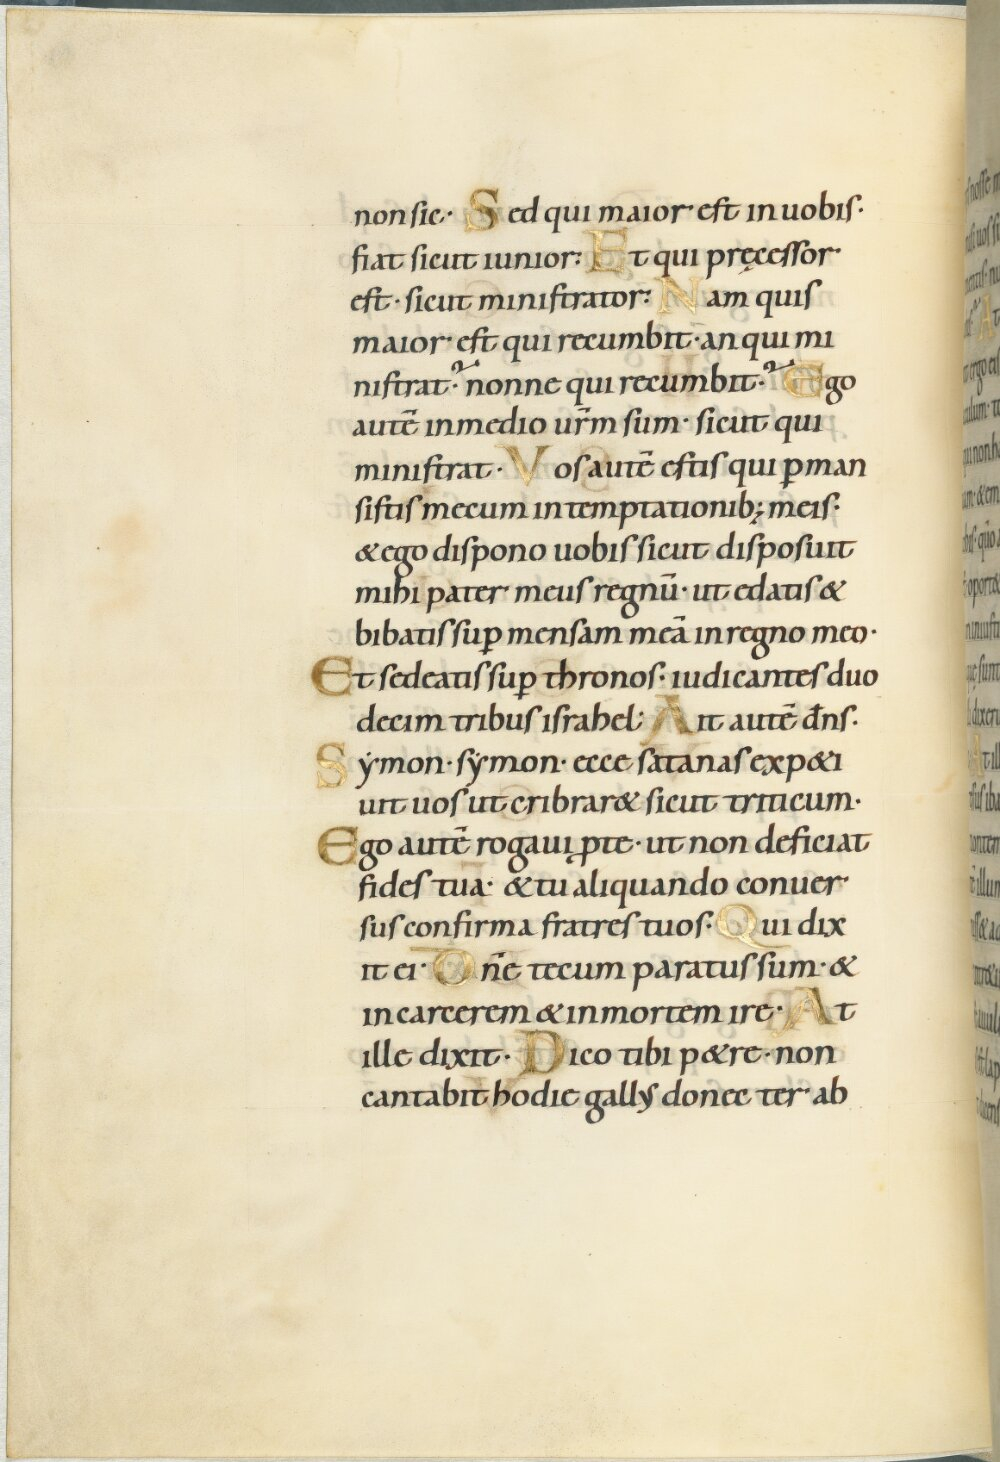 non sic· Sed qui maior est in uobis·
fiat sicut iunior: Et qui pręcessor
est· sicut ministrator: Nam quis
maior· est qui recumbit·an qui mi
nistrat? nonne qui recumbit? Ego
autē in medio ur̄m sum· sicut qui
ministrat· Vos autē estis qui ꝑman
sistis mecum in temptationib; meis·
& ego dispono uobis sicut disposuit
mihi pater meus regnū· ut edatis &
bibatis suꝑ mensam meā in regno meo·
Et sedeatis suꝑ thronos· iudicantes duo
decim tribus israhel· Ait autē dn̄s·
Sẏmon· sẏmon· ecce satanas exp&i
uit uos ut cribrar& sicut triticum·
Ego autē rogaui ꝓ te· ut non deficiat
fides tua· & tu aliquando conuer
sus confirma fratres tuos· Qui dix
it ei· Dn̄e tecum paratus sum· &
in carcerem & in mortem ire· At
ille dixit· Dico tibi p&re· non
cantabit hodie gallus donec ter ab